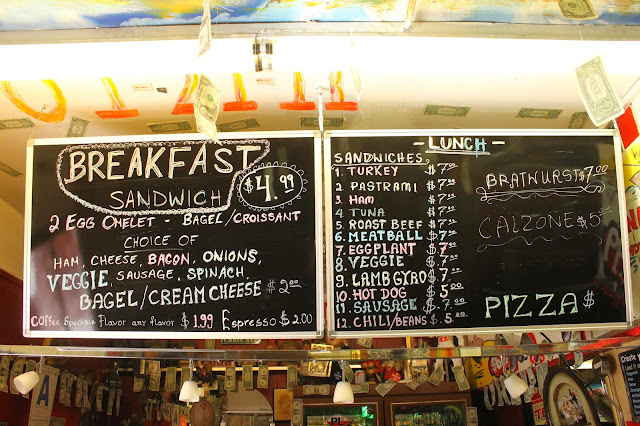 BREAKFAST
SANDWICH $4.99
2 EGG OMELET - BAGEL/CROISSANT
CHOICE OF
HAM, CHEESE, BACON, ONIONS,
VEGGIE, SAUSAGE, SPINACH,
BAGEL/CREAM CHEESE $2.00
Coffee Speciale Flavor any flavor $1.99 Espresso $2.00
- LUNCH -
SANDWICHES
1. TURKEY $7.00
2. PASTRAMI $7.00
3. HAM $7.00
4. TUNA $7.00
5. ROAST BEEF $7.00
6. MEATBALL $7.00
7. EGGPLANT $7.00
8. VEGGIE $7.00
9. LAMB GYRO $7.00
10. HOT DOG $5.00
11. SAUSAGE $7.00
12. CHILI/BEANS $5.00
BRATWURST $7.00
CALZONE $5.00
PIZZA $